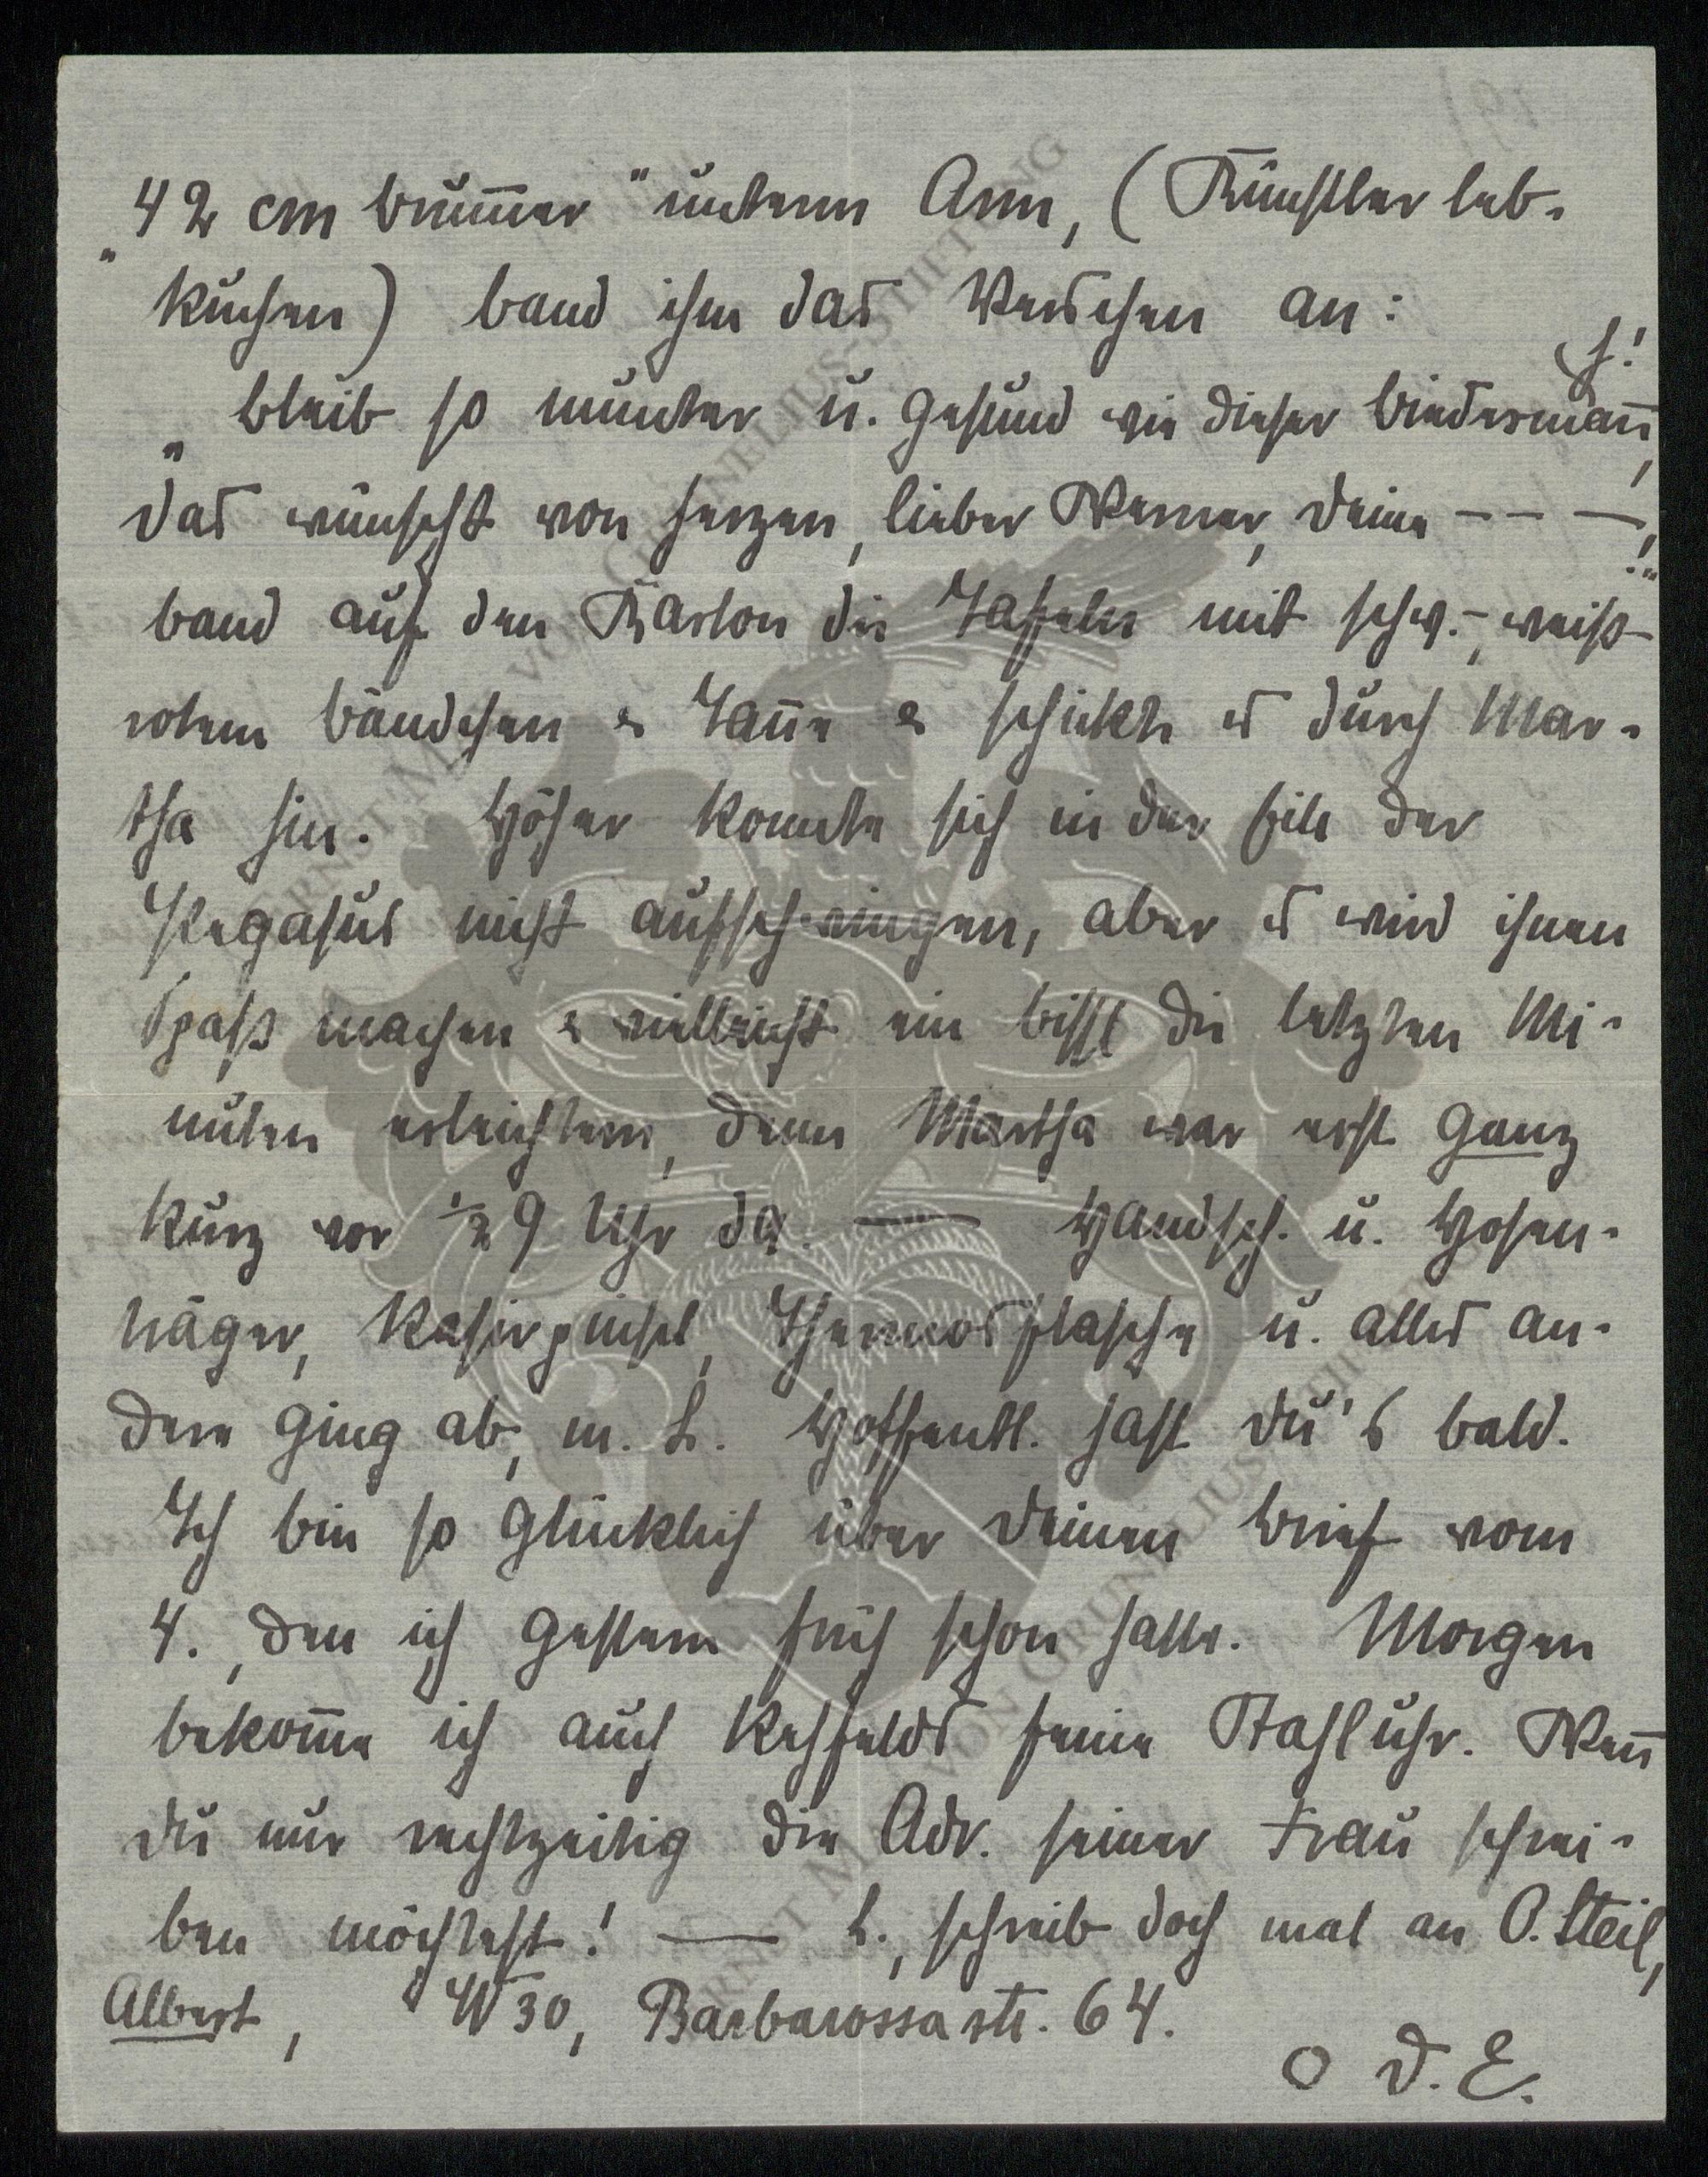 „42 cm Brum̅er" unterm Arm, (Künstlerleb-
kuchen) band ihm das Verschen an:
„Bleib so munter u. gesund wie dieser Biedersman̅,
(h!
das wünscht von Herzen, lieber Werner, Deine - - —!"
band auf den Karton die Tafeln mit schw.-, weiß-
rotem Bändchen & Tan̅e & schickte es durch Mar-
tha hin. Höher konnte sich in der Eile der
Pegasus nicht aufschwingen, aber es wird ihnen
Spaß machen & vielleicht ein bissl die letzten Mi-
nuten erleichtern, denn Martha war erst ganz
kurz vor ½ 9 Uhr da. — Handsch. u. Hosen-
träger, Rasirpinsel, Thermosflasche u. alles an-
dere ging ab, m. L. Hoffentl. hast Du's bald.
Ich bin so glücklich über Deinen Brief vom
4., den ich gestern früh schon hatte. Morgen
bekom̅e ich auch Rehfelds feine Stahluhr. Wen̅
Du nur rechtzeitig die Adr. seiner Frau schrei-
ben möchtest! — L., schreib doch mal an O. Steil,
Albert, W 30, Barbarossastr. 64.
O D. E.
ERNST MAX VON GRUNELIUS-STIFTUNG
ERNST MAX VON GRUNELIUS-STIFTUNG